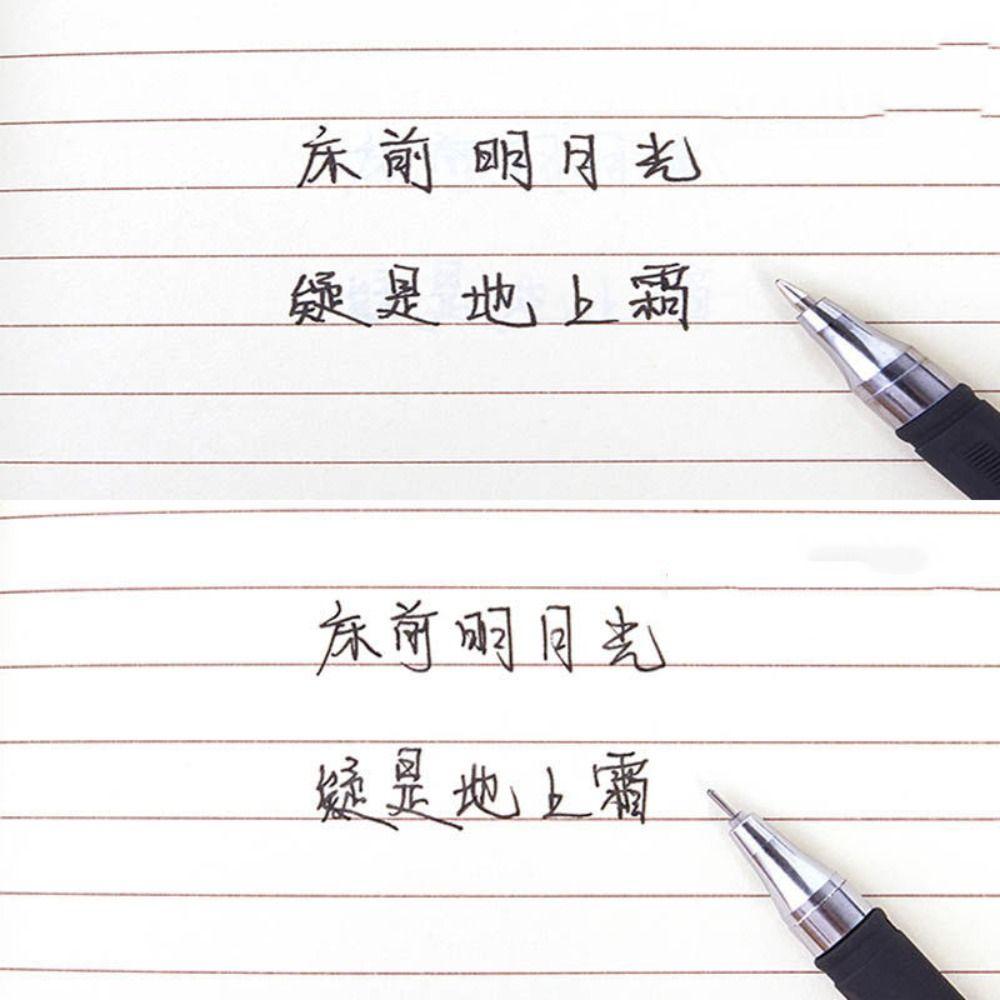 床前明月光
疑是地上霜
床前明月光
疑是地上霜